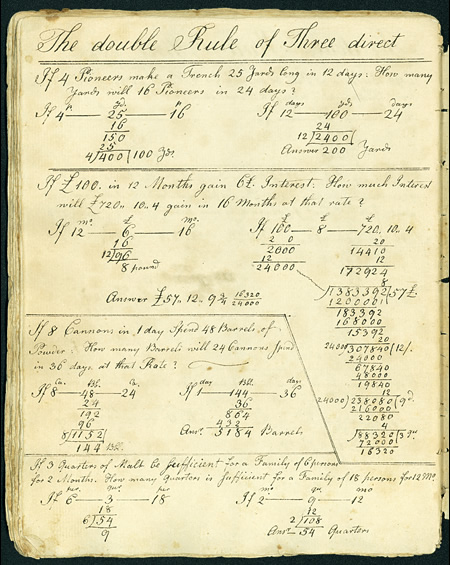 The double Rule of Three direct
If 4 Pioneers make a Trench 25 Yards long in 12 days: How many
Yards will 16 Pioneers in 24 days?
If 4 — 25 — 16
16
150
25
4)400(100 Yds.
days yds days
If 12 — 100 — 24
24
12)2400(
Answer 200 Yards
If £100. in 12 Months gain 6£. Interest. How much Interest
will £720" 10.. 4 gain in 16 Months at that rate?
mo. £ mo.
If 12 — 6 — 16
16
12)96
8 pound
£ £
If 100 — 8 — 720, 10. 4
2 0
2000
12
24000
20
14410
12
172924
8
)1383392(57£.
1200001
183392
168000
15392
20
24000)307840(12/.
24000
67840
48000
19840
12
24000)238080(9d.
216000
22080
4
)88320(3qr.
72000
16320
Answer £57.. 12.. 9 3/4 16320/24000
If 8 Cannons in 1 day Spend 48 Barrels of
Powder: How many Barrels will 24 Cannons Spend
in 36 days at that Rate?
Can. Bll. Can.
If 8 — 48 — 24
24
192
96
8)1152
144 Bll.
day Bll. days
If 1 — 144 — 36
36
864
432
Answ. 5184 Barrels
If 3 Quarters of Malt be sufficient for a Family of 6 persons
for 2 Months. How many Quarters is sufficient for a Family of 18 persons for 12 Mo
per. qur. per.
If 6 — 3 — 18
18
6)54
9
mo qr. mo
If 2 — 9 — 12
12
2)108
Answ. 54 Quarters